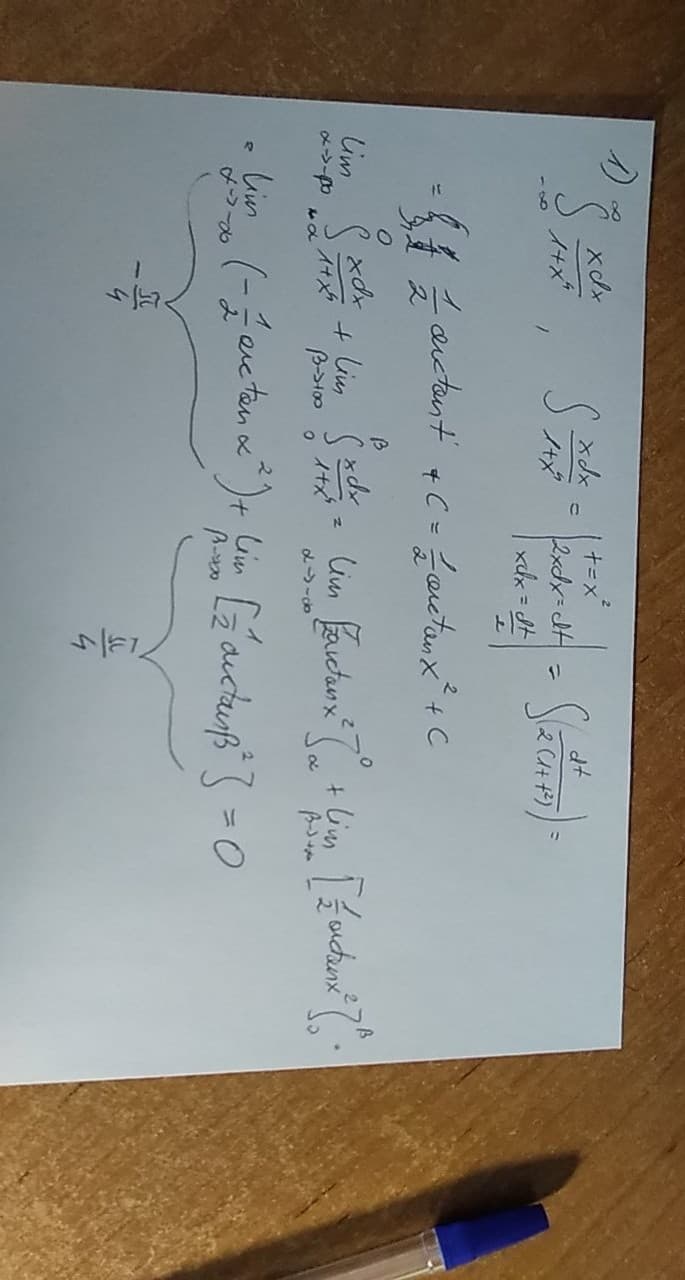 1) ∞∫-∞ xdx/1+x⁴ , ∫ xdx/1+x⁴ = | t=x² 2xdx=dt xdx=dt/2 | = ∫(dt/2(1+t²)) =
= 1/2 arctan t + C = 1/2 arctan x² + C
lim α→-∞ 0∫α xdx/1+x⁴ + lim β→+∞ β∫0 xdx/1+x⁴ = lim α→-∞ [1/2 arctan x²]0 α + lim β→+∞ [1/2 arctan x²]β 0 .
= lim α→-∞ (-1/2 arctan α²) + lim β→∞ [1/2 arctan β²] = 0
-π/4 π/4